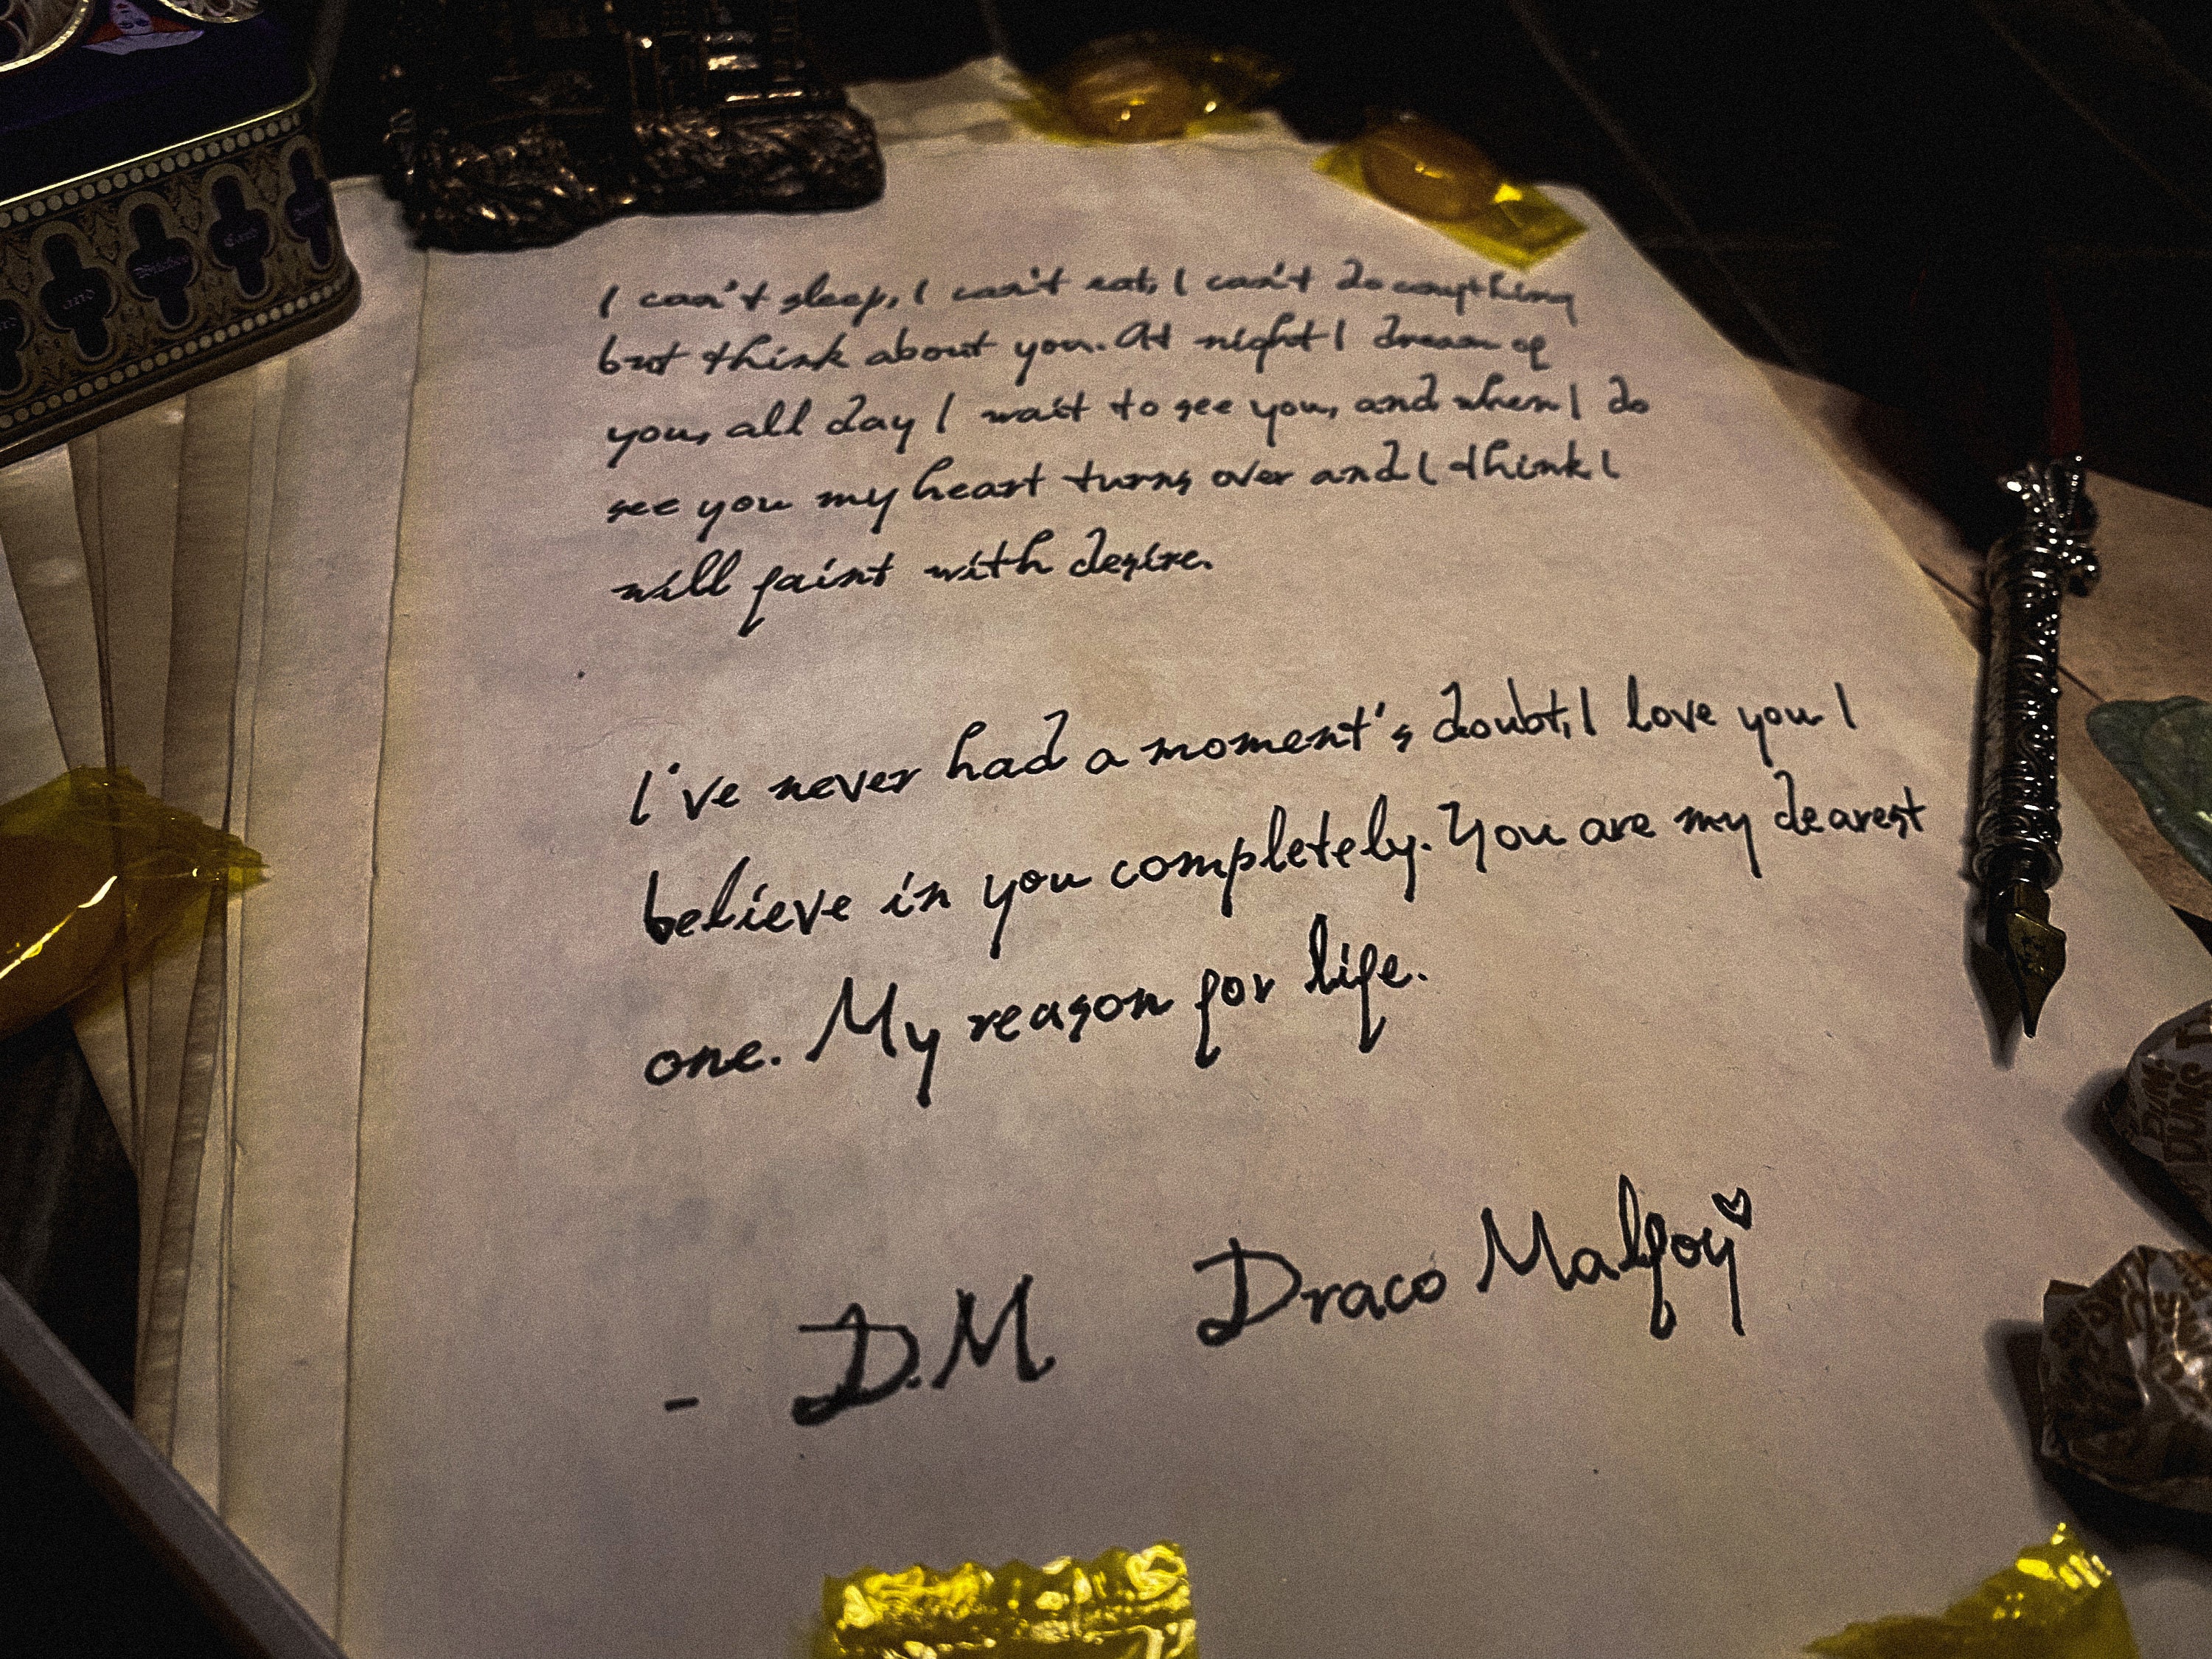 and
Witches
Card
I can't sleep, I can't eat, I can't do anything
but think about you. At night I dream of
you, all day I wait to see you, and when I do
see you my heart turns over and I think I
will faint with desire.
I've never had a moment's doubt, I love you I
believe in you completely. You are my dearest
one. My reason for life.
- D.M Draco Malfoy
DUM
DUMS